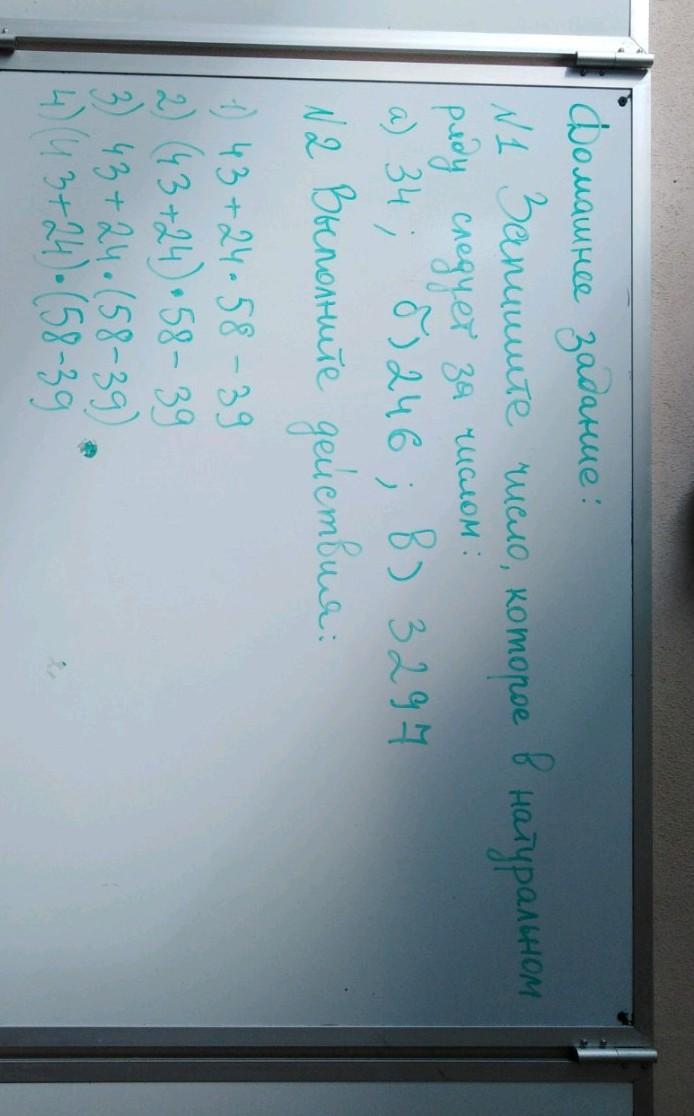 Домашнее задание:
N1 Запишите число, которое в натуральном
ряду следует за числом:
а) 34; б) 246; в) 3297
N2 Выполните действия:
1) 43 + 24 · 58 - 39
2) (43 + 24) · 58 - 39
3) 43 + 24 · (58 - 39)
4) (43 + 24) · (58 - 39